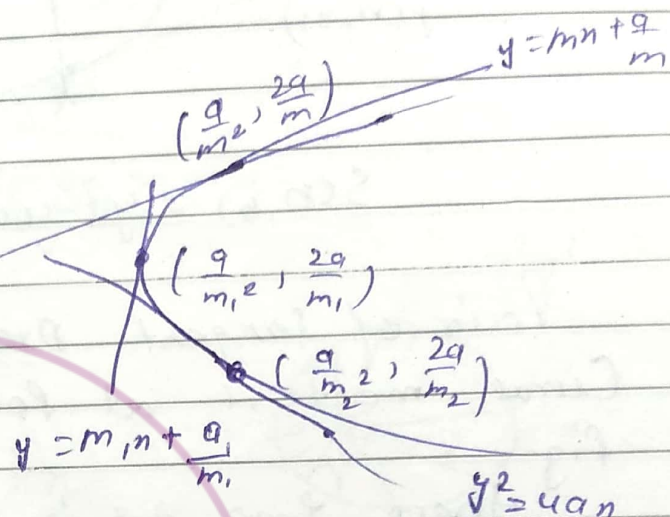 y = mx + a/m
(a/m², 2a/m)
(a/m₁², 2a/m₁)
(a/m₂², 2a/m₂)
y = m₁x + a₁/m₁
y² = 4ax